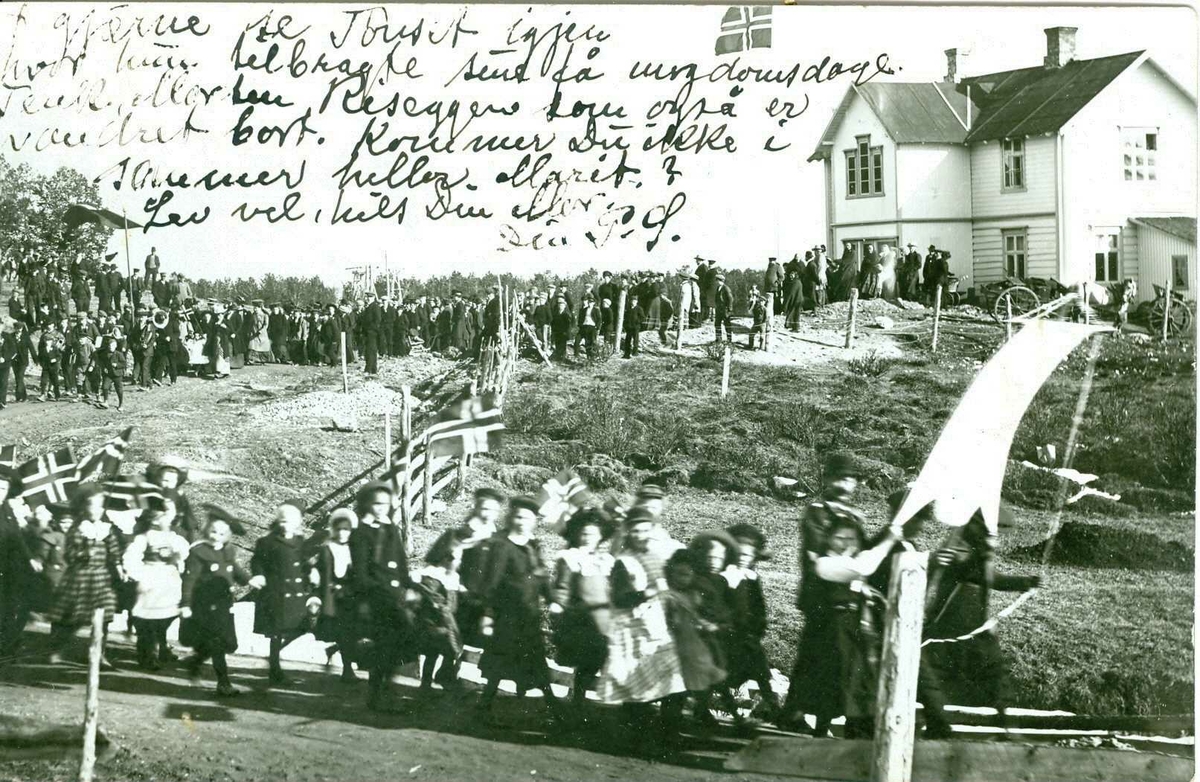 gjærne se Tönset igjen
hvor hun tilbragte sine få ungdomsdage.
Tenk, Morten Riseggen som også er
vandret bort. Kommer Du ikke i
sommer heller Marit?
Lev vel, hils Din Mor,
Din P. S.